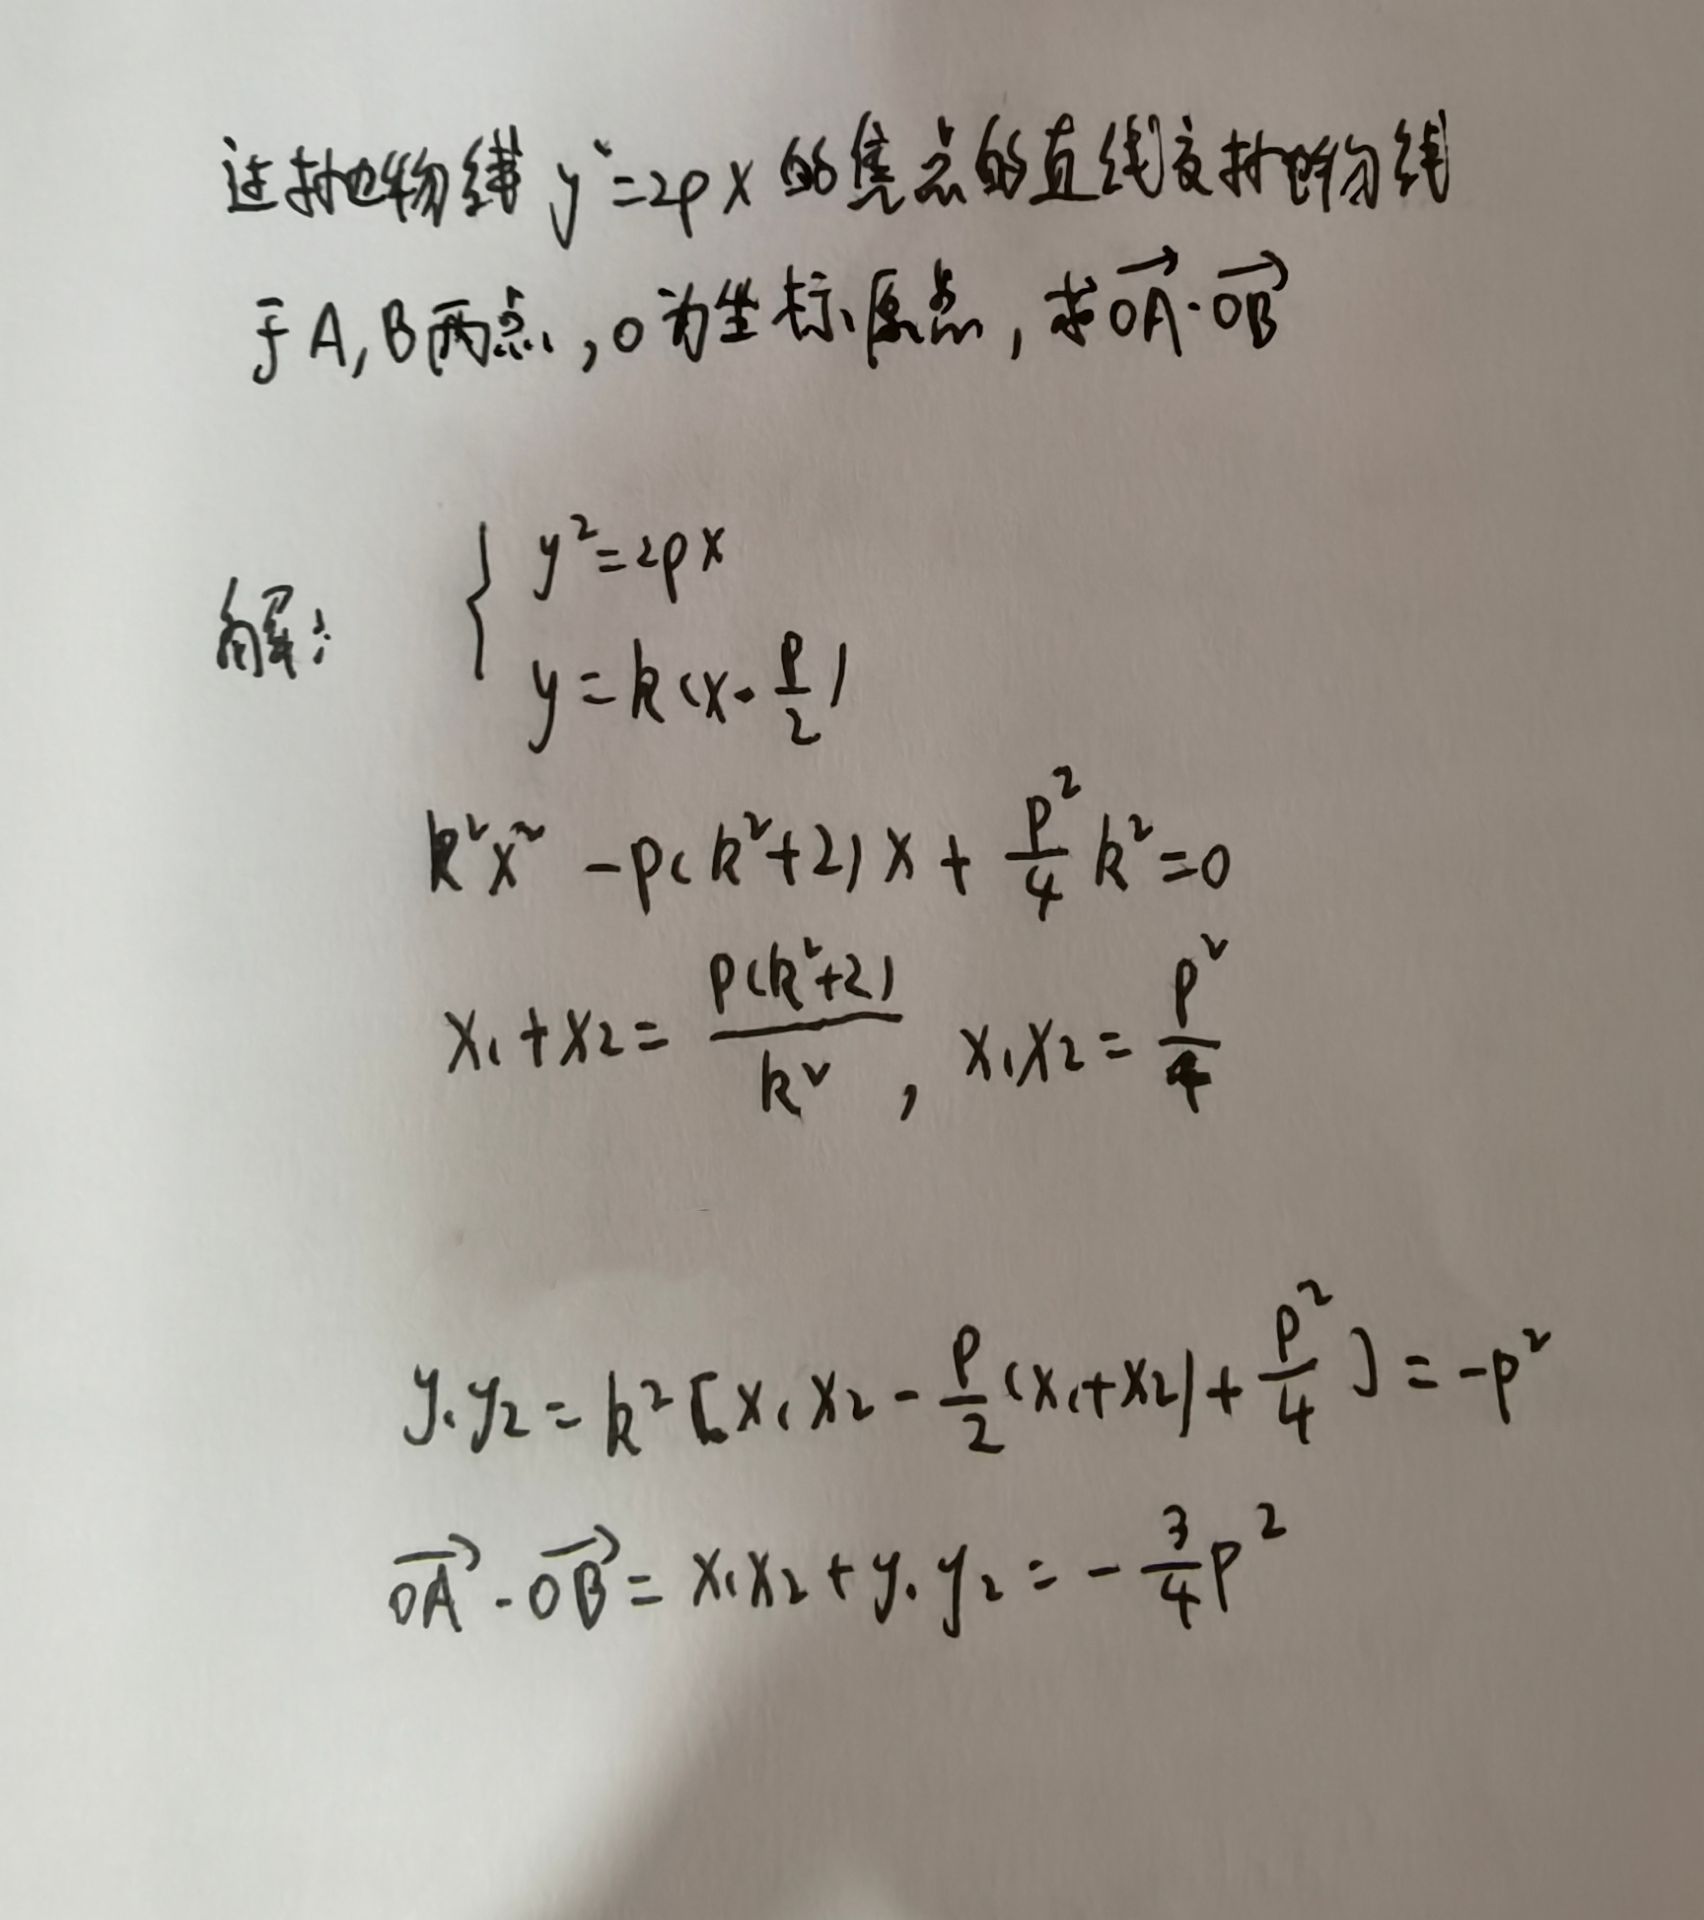 过抛物线 y²=2px 的焦点的直线交抛物线
于A,B两点,O为坐标原点,求 \overrightarrow{OA}·\overrightarrow{OB}
解: { y²=2px
y=k(x-\frac{p}{2})
k²x²-p(k²+2)x+\frac{p²}{4}k²=0
x₁+x₂=\frac{p(k²+2)}{k²}, x₁x₂=\frac{p²}{4}
y₁y₂=k²[x₁x₂-\frac{p}{2}(x₁+x₂)+\frac{p²}{4}]=-p²
\overrightarrow{OA}·\overrightarrow{OB}=x₁x₂+y₁y₂=-\frac{3}{4}p²